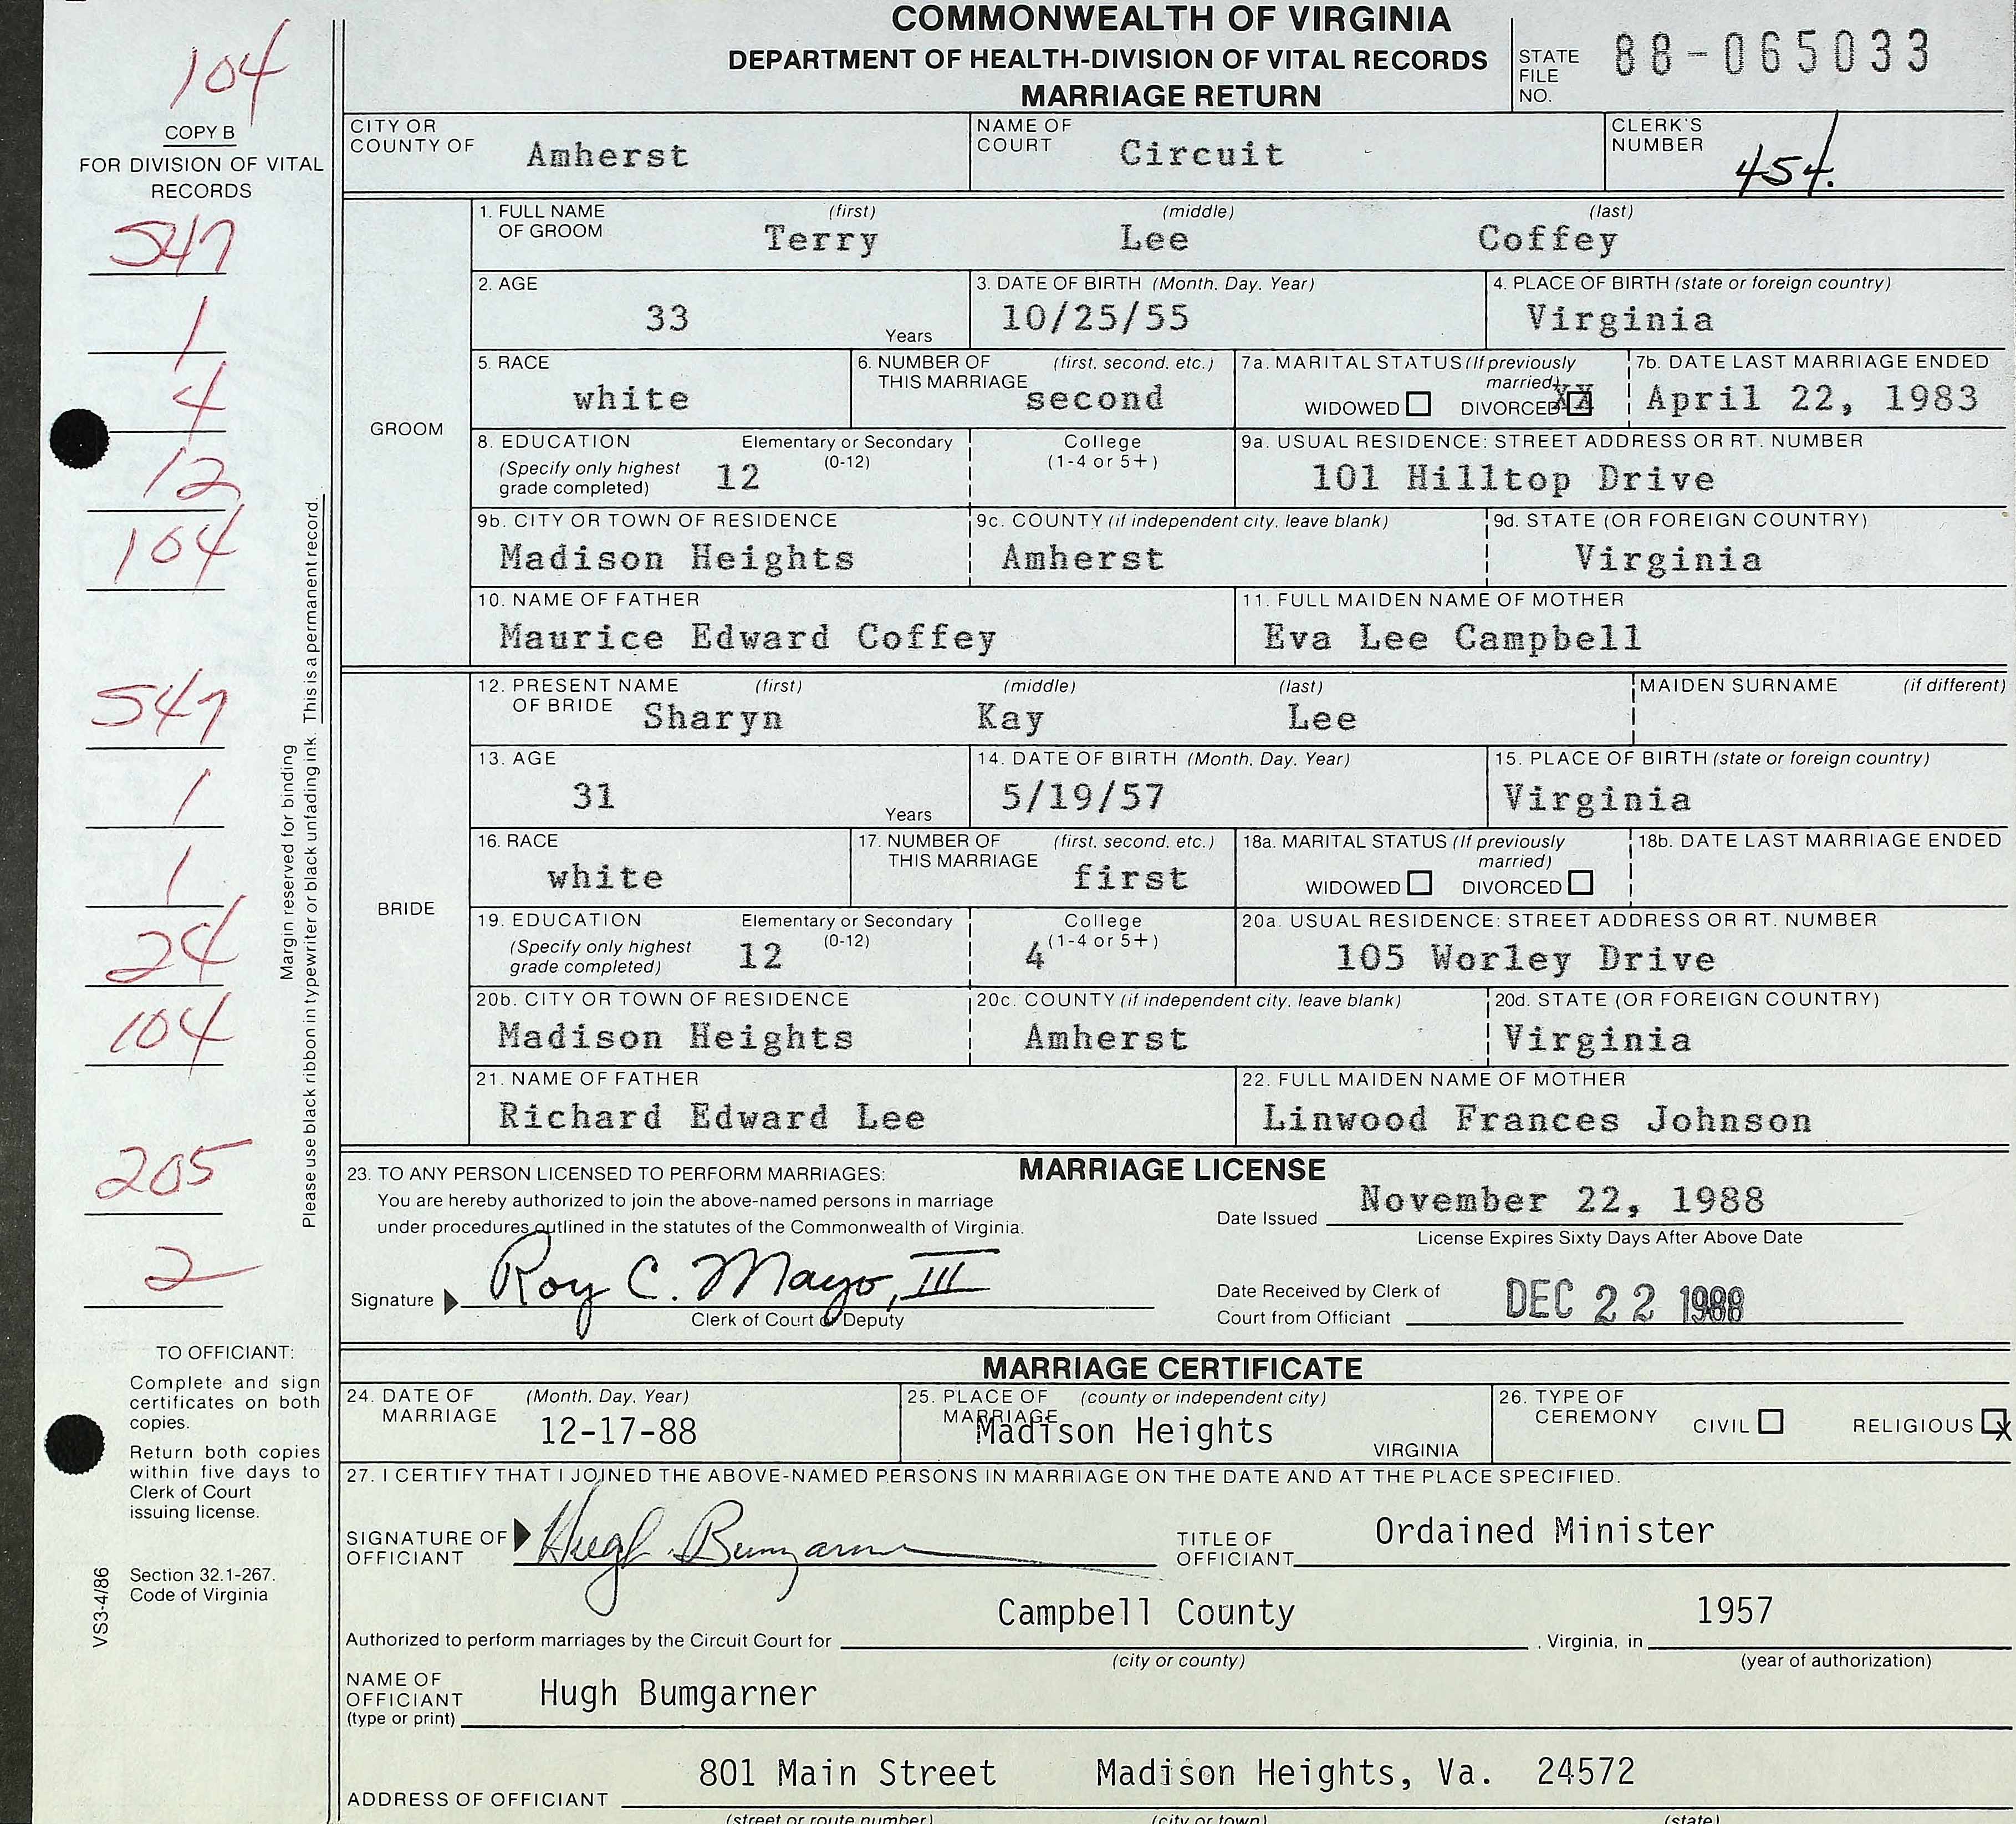 COMMONWEALTH OF VIRGINIA
DEPARTMENT OF HEALTH-DIVISION OF VITAL RECORDS
MARRIAGE RETURN
STATE FILE NO. 88-065033
104
COPY B
FOR DIVISION OF VITAL RECORDS
547
1
4
12
104
547
1
1
24
104
205
2
Margin reserved for binding
Please use black ribbon in typewriter or black unfading ink. This is a permanent record.
TO OFFICIANT:
Complete and sign
certificates on both
copies.
Return both copies
within five days to
Clerk of Court
issuing license.
Section 32.1-267.
Code of Virginia
VS3-4/86
CITY OR COUNTY OF Amherst
NAME OF COURT Circuit
CLERK'S NUMBER 454.
GROOM
1. FULL NAME OF GROOM (first) Terry (middle) Lee (last) Coffey
2. AGE 33 Years
3. DATE OF BIRTH (Month. Day. Year) 10/25/55
4. PLACE OF BIRTH (state or foreign country) Virginia
5. RACE white
6. NUMBER OF THIS MARRIAGE (first. second. etc.) second
7a. MARITAL STATUS (If previously married) WIDOWED DIVORCED XX
7b. DATE LAST MARRIAGE ENDED April 22, 1983
8. EDUCATION (Specify only highest grade completed) Elementary or Secondary (0-12) 12 College (1-4 or 5+)
9a. USUAL RESIDENCE: STREET ADDRESS OR RT. NUMBER 101 Hilltop Drive
9b. CITY OR TOWN OF RESIDENCE Madison Heights
9c. COUNTY (if independent city. leave blank) Amherst
9d. STATE (OR FOREIGN COUNTRY) Virginia
10. NAME OF FATHER Maurice Edward Coffey
11. FULL MAIDEN NAME OF MOTHER Eva Lee Campbell
BRIDE
12. PRESENT NAME OF BRIDE (first) Sharyn (middle) Kay (last) Lee MAIDEN SURNAME (if different)
13. AGE 31 Years
14. DATE OF BIRTH (Month. Day. Year) 5/19/57
15. PLACE OF BIRTH (state or foreign country) Virginia
16. RACE white
17. NUMBER OF THIS MARRIAGE (first. second. etc.) first
18a. MARITAL STATUS (If previously married) WIDOWED DIVORCED
18b. DATE LAST MARRIAGE ENDED
19. EDUCATION (Specify only highest grade completed) Elementary or Secondary (0-12) 12 College (1-4 or 5+) 4
20a. USUAL RESIDENCE: STREET ADDRESS OR RT. NUMBER 105 Worley Drive
20b. CITY OR TOWN OF RESIDENCE Madison Heights
20c. COUNTY (if independent city. leave blank) Amherst
20d. STATE (OR FOREIGN COUNTRY) Virginia
21. NAME OF FATHER Richard Edward Lee
22. FULL MAIDEN NAME OF MOTHER Linwood Frances Johnson
MARRIAGE LICENSE
23. TO ANY PERSON LICENSED TO PERFORM MARRIAGES:
You are hereby authorized to join the above-named persons in marriage
under procedures outlined in the statutes of the Commonwealth of Virginia.
Date Issued November 22, 1988
License Expires Sixty Days After Above Date
Signature Roy C. Mayo, III
Clerk of Court or Deputy
Date Received by Clerk of
Court from Officiant DEC 22 1988
MARRIAGE CERTIFICATE
24. DATE OF MARRIAGE (Month. Day. Year) 12-17-88
25. PLACE OF MARRIAGE (county or independent city) Madison Heights VIRGINIA
26. TYPE OF CEREMONY CIVIL RELIGIOUS X
27. I CERTIFY THAT I JOINED THE ABOVE-NAMED PERSONS IN MARRIAGE ON THE DATE AND AT THE PLACE SPECIFIED.
SIGNATURE OF OFFICIANT Hugh Bumgarner
TITLE OF OFFICIANT Ordained Minister
Authorized to perform marriages by the Circuit Court for Campbell County, Virginia, in 1957
(city or county) (year of authorization)
NAME OF OFFICIANT (type or print) Hugh Bumgarner
ADDRESS OF OFFICIANT 801 Main Street Madison Heights, Va. 24572
(street or route number) (city or town) (state)